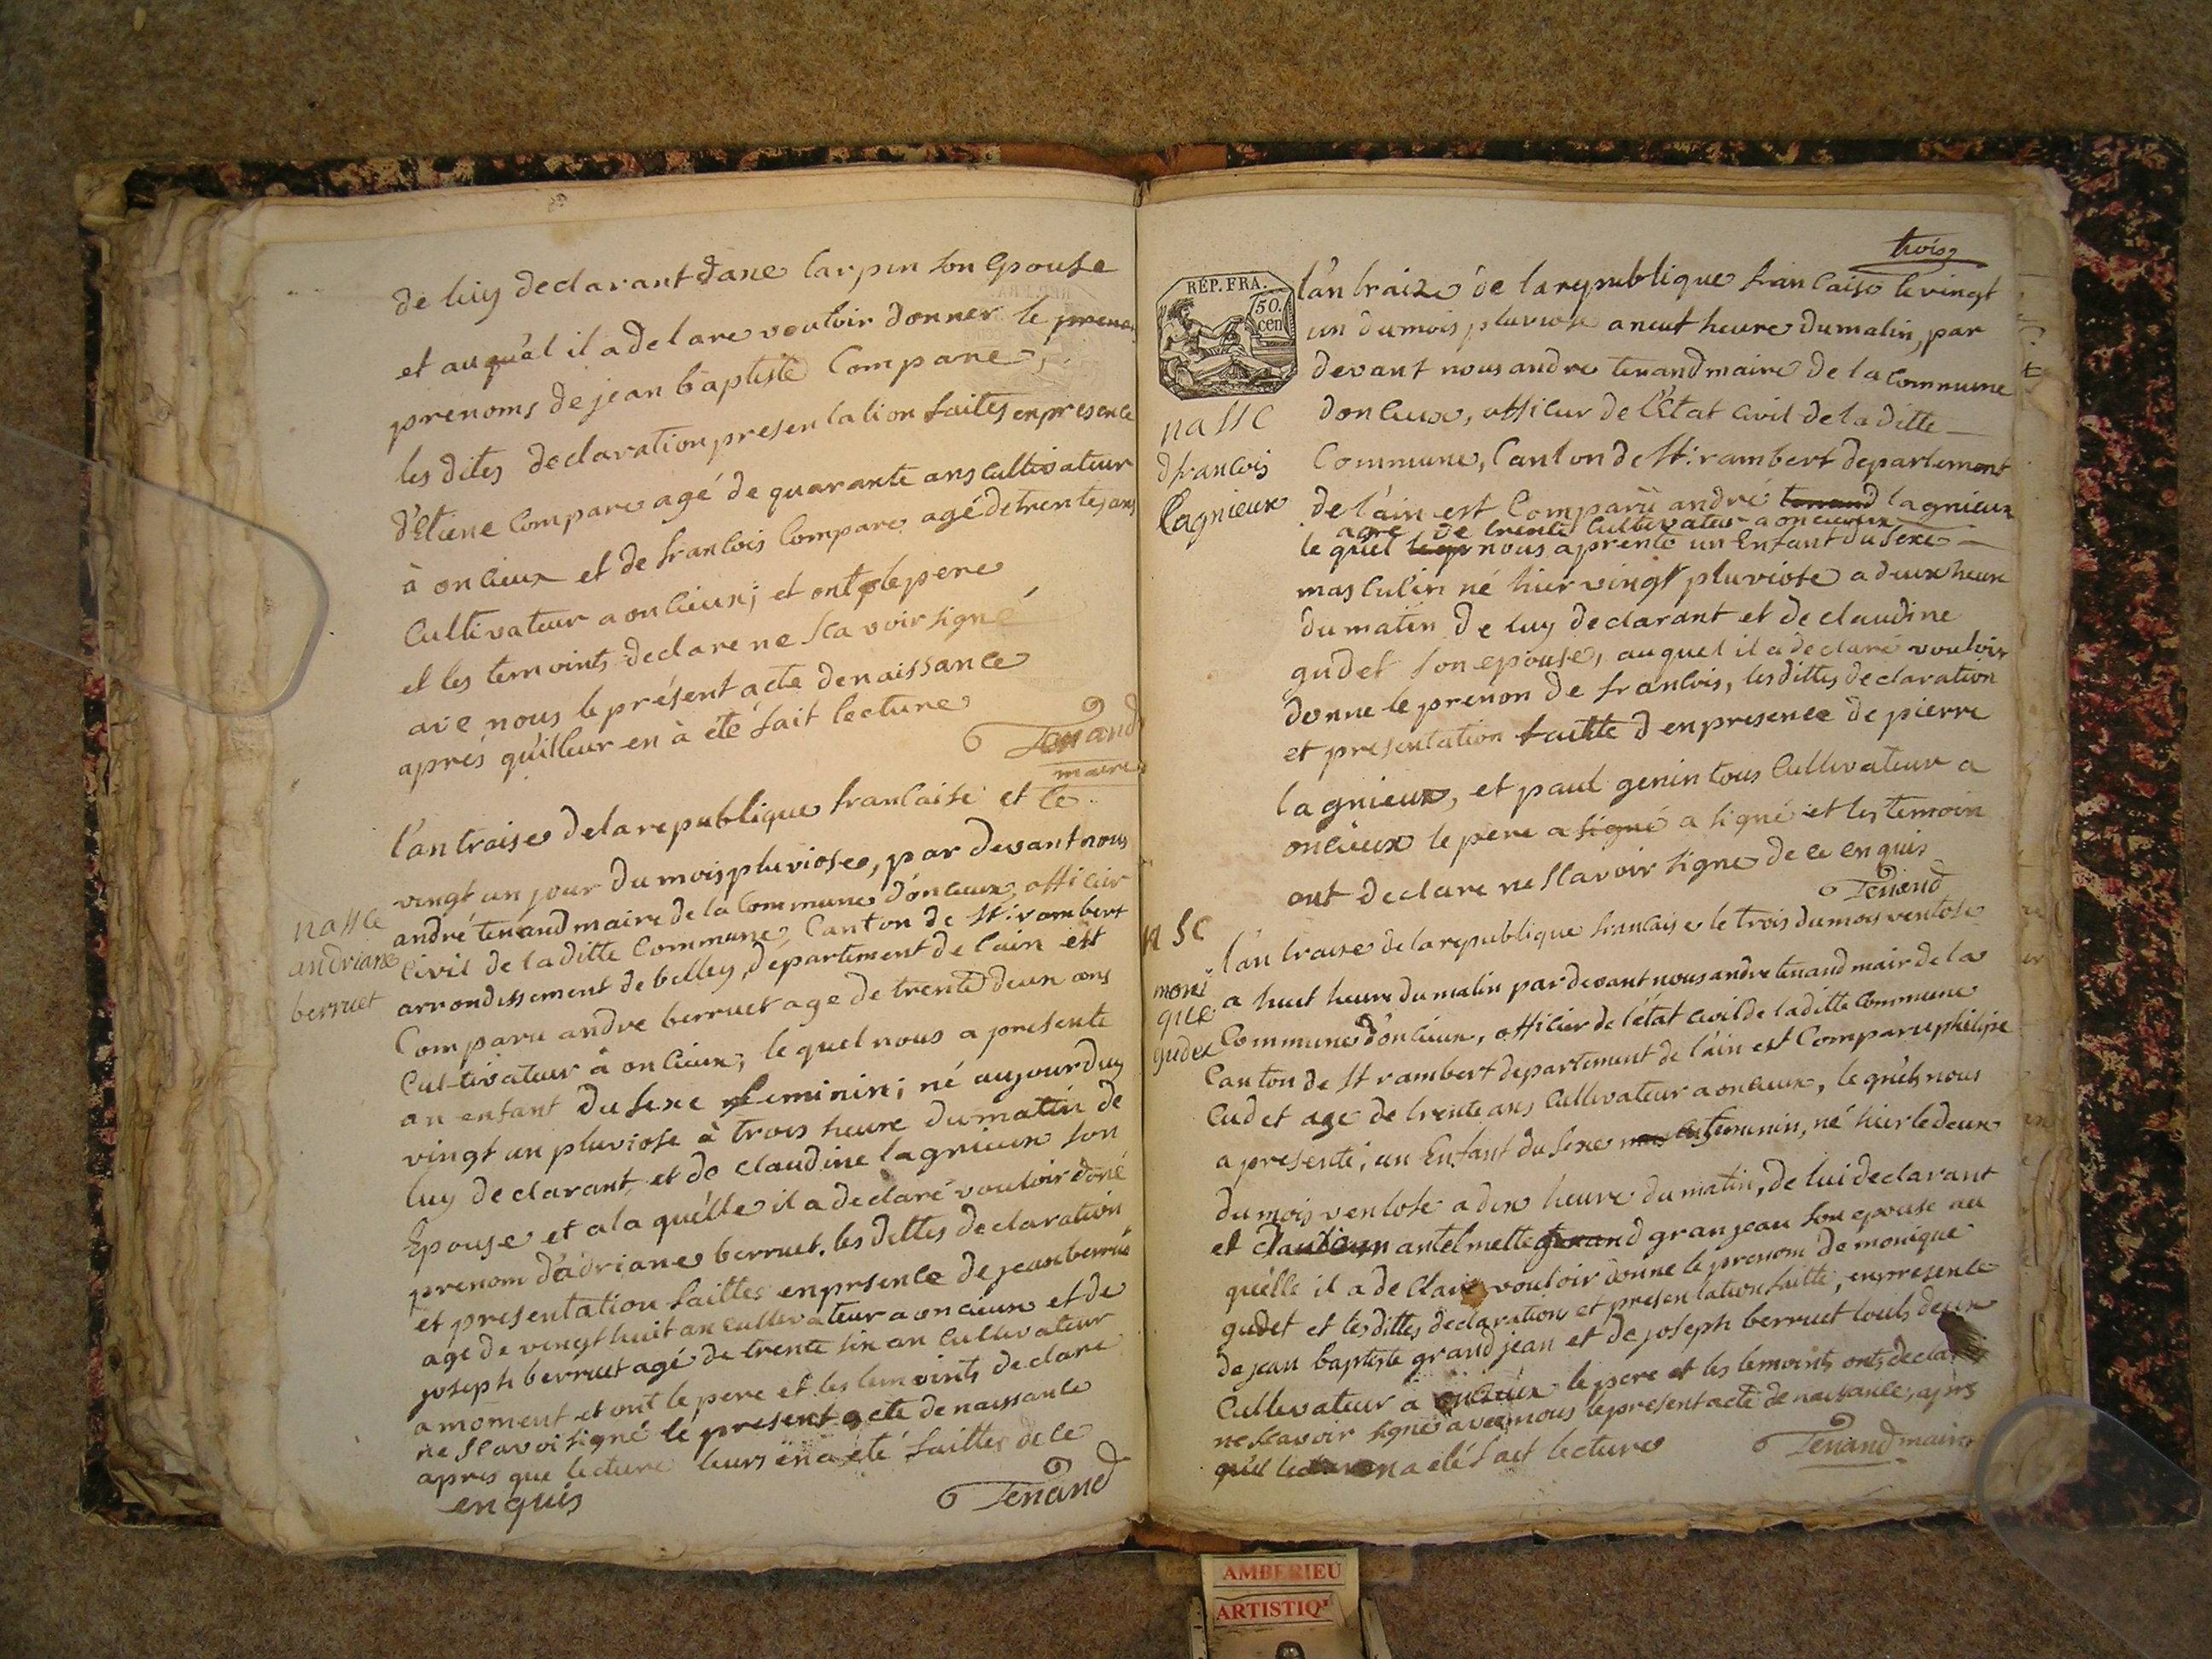 de luy declarant dane larpin son Epouse
et auquel il a delare vouloir donner le
prenoms de jean baptiste Compare,
les dites declaration presentation faites en presence
d'Etiene Compare agé de quarante ans Cultivateur
à oncieux et de francois Compare agé de trentes ans
Cultivateur a oncieux; et ont le pere
et les temoints declare ne scavoir signé
ave nous le présent acte de naissance
après quilleur en à été fait lecture
Tenand
maire
nassce
andriane
berruet
l'an traise de la republique francaise et le
vingt un jour du mois pluviose, par devant nous
andré tenand maire de la Commune d'oncieux, officier
Civil de la ditte Commune, Canton de St: rambert
arrondissement de belley, departement de lain est
Comparu andre berruet age de trente deux ans
Cultivateur à oncieux; le quel nous a presente
un enfant du sexe feminin; né aujourduy
vingt un pluviose à trois heure du matin de
luy declarant, et de Claudine lagnieux son
Epouse et a la quélle il a declaré vouloir doné
prenom d'adriane berruet. les dittes declaration
et presentation faittes en prsence de jean berrué
age de vingt huit an cultivateur a oncieux et de
joseph berruet agé de trente six an Cultivateur
a moment et ont le pere et les temoints declare
ne scavoi signé le present acte de naissance
apres que lecture leurs en a été faittes de ce
enquis
Tenand
trois
RÉP. FRA.
50.
cen
nassc
dfrancois
lagnieux
l'an traize de la republique francaise le vingt
un du mois pluviose a neuf heure du matin, par
devant nous andre tenand maire de la commune
doncieux, officier de l'Etat Civil de la ditte
Commune, Canton de St: rambert departement
de l'ain est Comparu andré tenand lagnieux
agre de trente Cultivateur a oncieux
le quel nous aprente un Enfant du sexe
masculin né hier vingt pluviose a deux heure
du matin de luy declarant et de claudine
gudet son epouse, auquel il a declaré vouloir
donne le prenon de francois, les dittes declaration
et presentation faitte d en presence de pierre
lagnieux, et paul genin tous Cultivateur a
oncieux le pere a signé a signé et les temoin
ont declare ne scavoir signe de ce enquis
Tenand
n sc
moni
que
gudet
l'an traise de la republique francaise le trois du mois ventose
a huit heure du matin par devant nous andre tenand mair de la
Commune d'oncieux, officier de l'état civil de la ditte Commune
Canton de St rambert departement de l'ain est Comparu philipe
Cudet age de trente ans Cultivateur a oncieux, le quel nous
a presente; un Enfant du sexe feminin, né hier le deux
du mois ventose a dix heure du matin, de lui declarant
et antelmette granjean son epouse au
quélle il a declaré vouloir donne le prenom de monique
gudet et les dittes declaration et presentation faitte, en presence
de jean baptiste grand jean et de joseph berruet touts deux
Cultivateur a oncieux le pere et les temoints onts decla
ne scavoir signé avec nous le present acte de naissance, apres
qu'il en a eté fait lecture
Tenand maire
AMBERIEU
ARTISTIQ